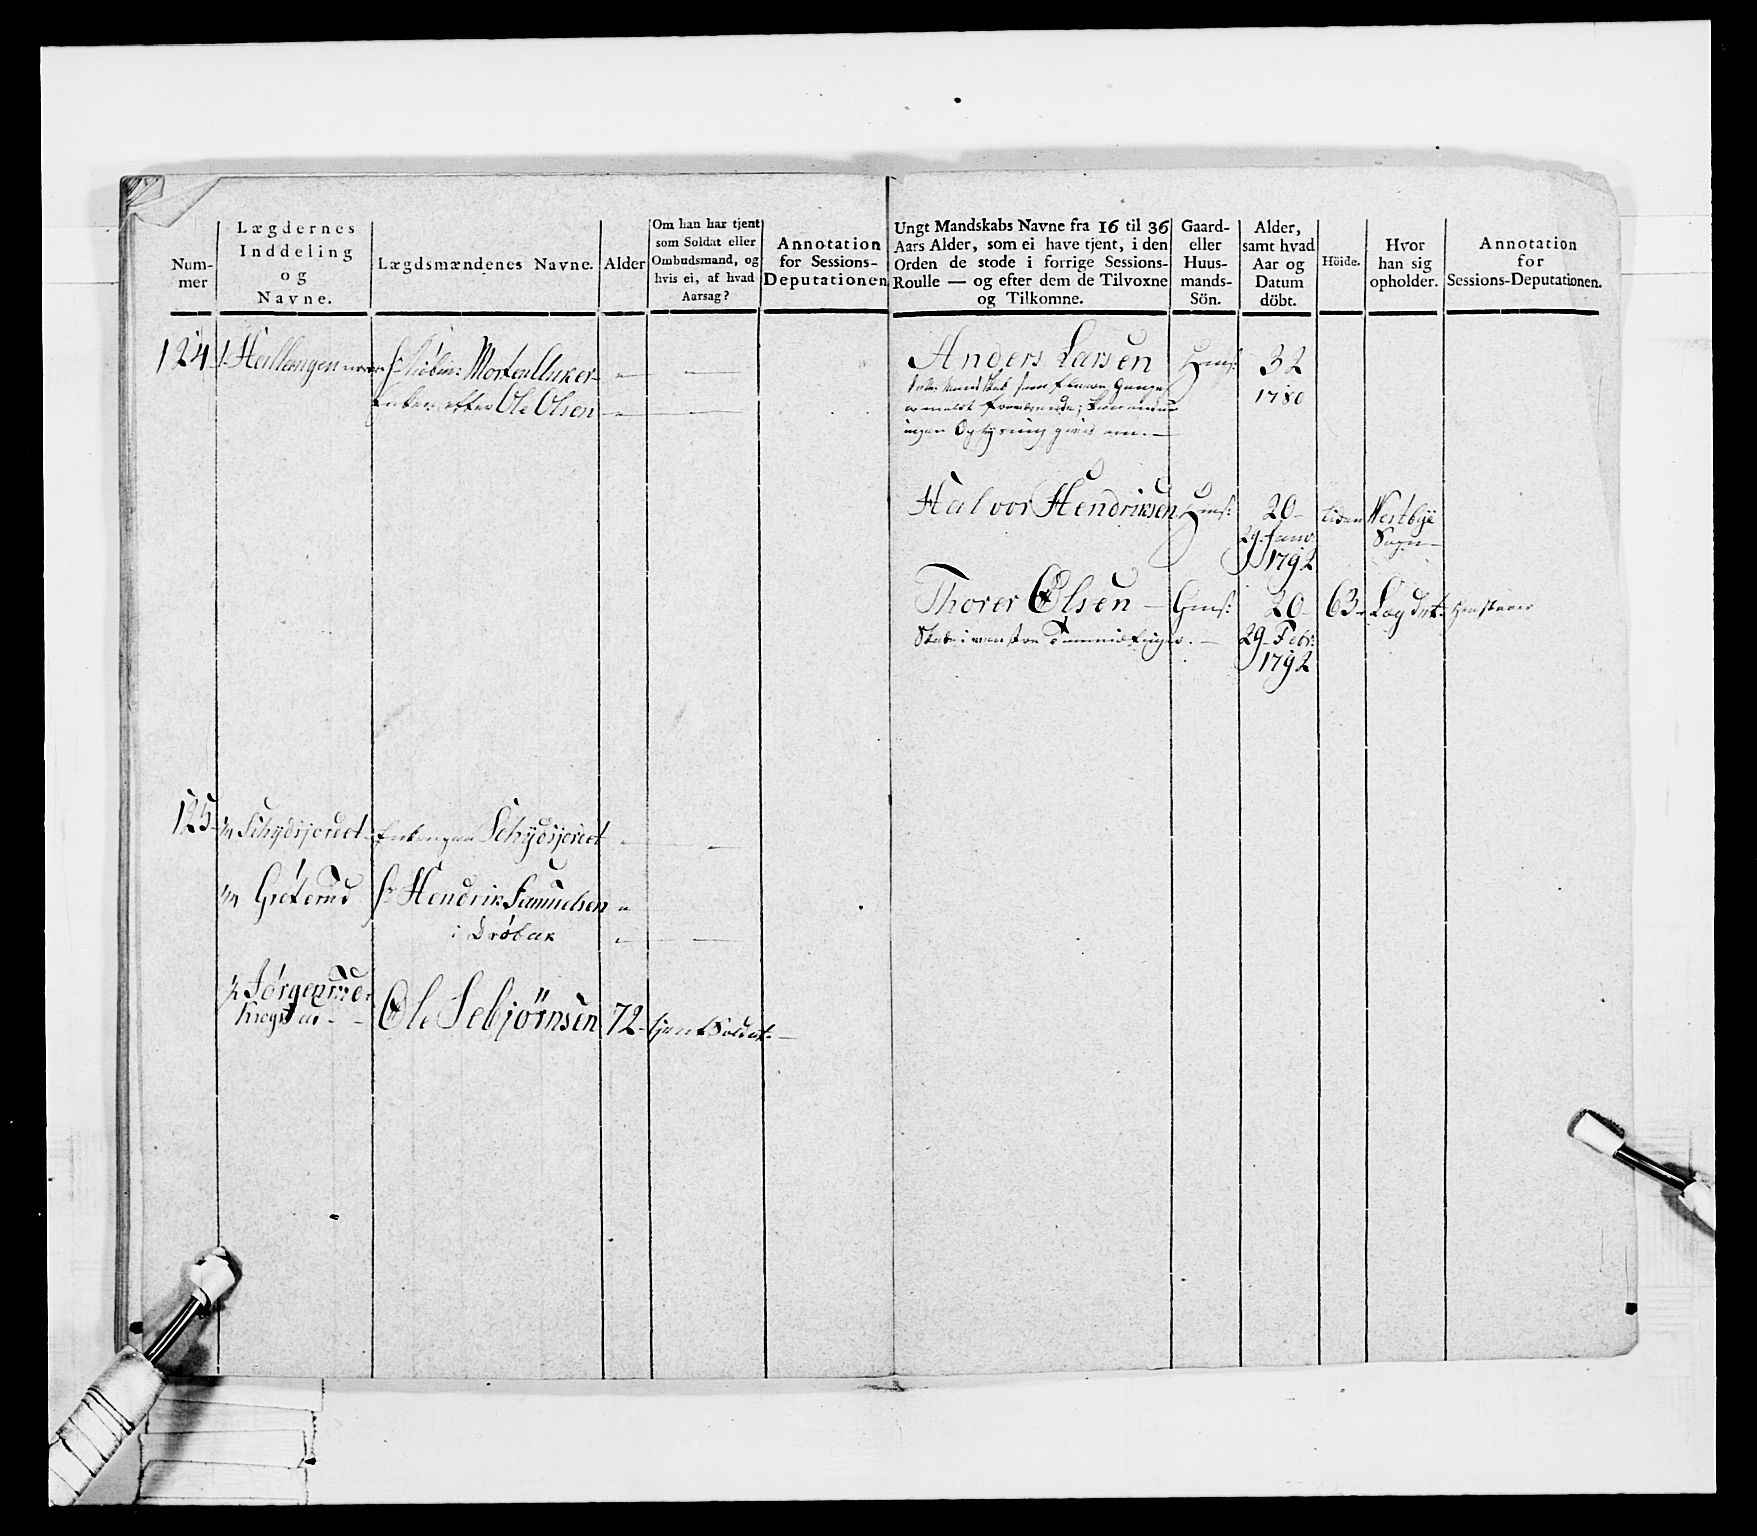 Num-
mer
Lægdernes
Inddeling
og
Navne.
Lægdsmændenes Navne.
Alder
Om han har tjent
som Soldat eller
Ombudsmand, og
hvis ei, af hvad
Aarsag?
Annotation
for Sessions-
Deputationen
Ungt Mandskabs Navne fra 16 til 36
Aars Alder, som ei have tjent, i den
Orden de stode i forrige Sessions-
Roulle — og efter dem de Tilvoxne
og Tilkomne.
Gaard-
eller
Huus-
mands-
Sön.
Alder,
samt hvad
Aar og
Datum
döbt.
Höide.
Hvor
han sig
opholder.
Annotation
for
Sessions-Deputationen.
124
1 Hallangen
Morten Anker
Enken efter Ole Olsen
Anders Larsen
Huus:
32
1780
ingen Oplysning gives om. —
Halvor Hendriksen
Huus:
20
29 Janv:
1792
liden
Westbye
Sogn
Thorer Olsen
Huus:
20
29 Febr:
1792
63
Lægdet
125
Schydsjordet
Schydsjordet
Gröterud
Sr Hendrik Samuelsen
i Dröbak
½ Jörgenrud
Ole Sebjörnsen
72
tjent Soldat. —